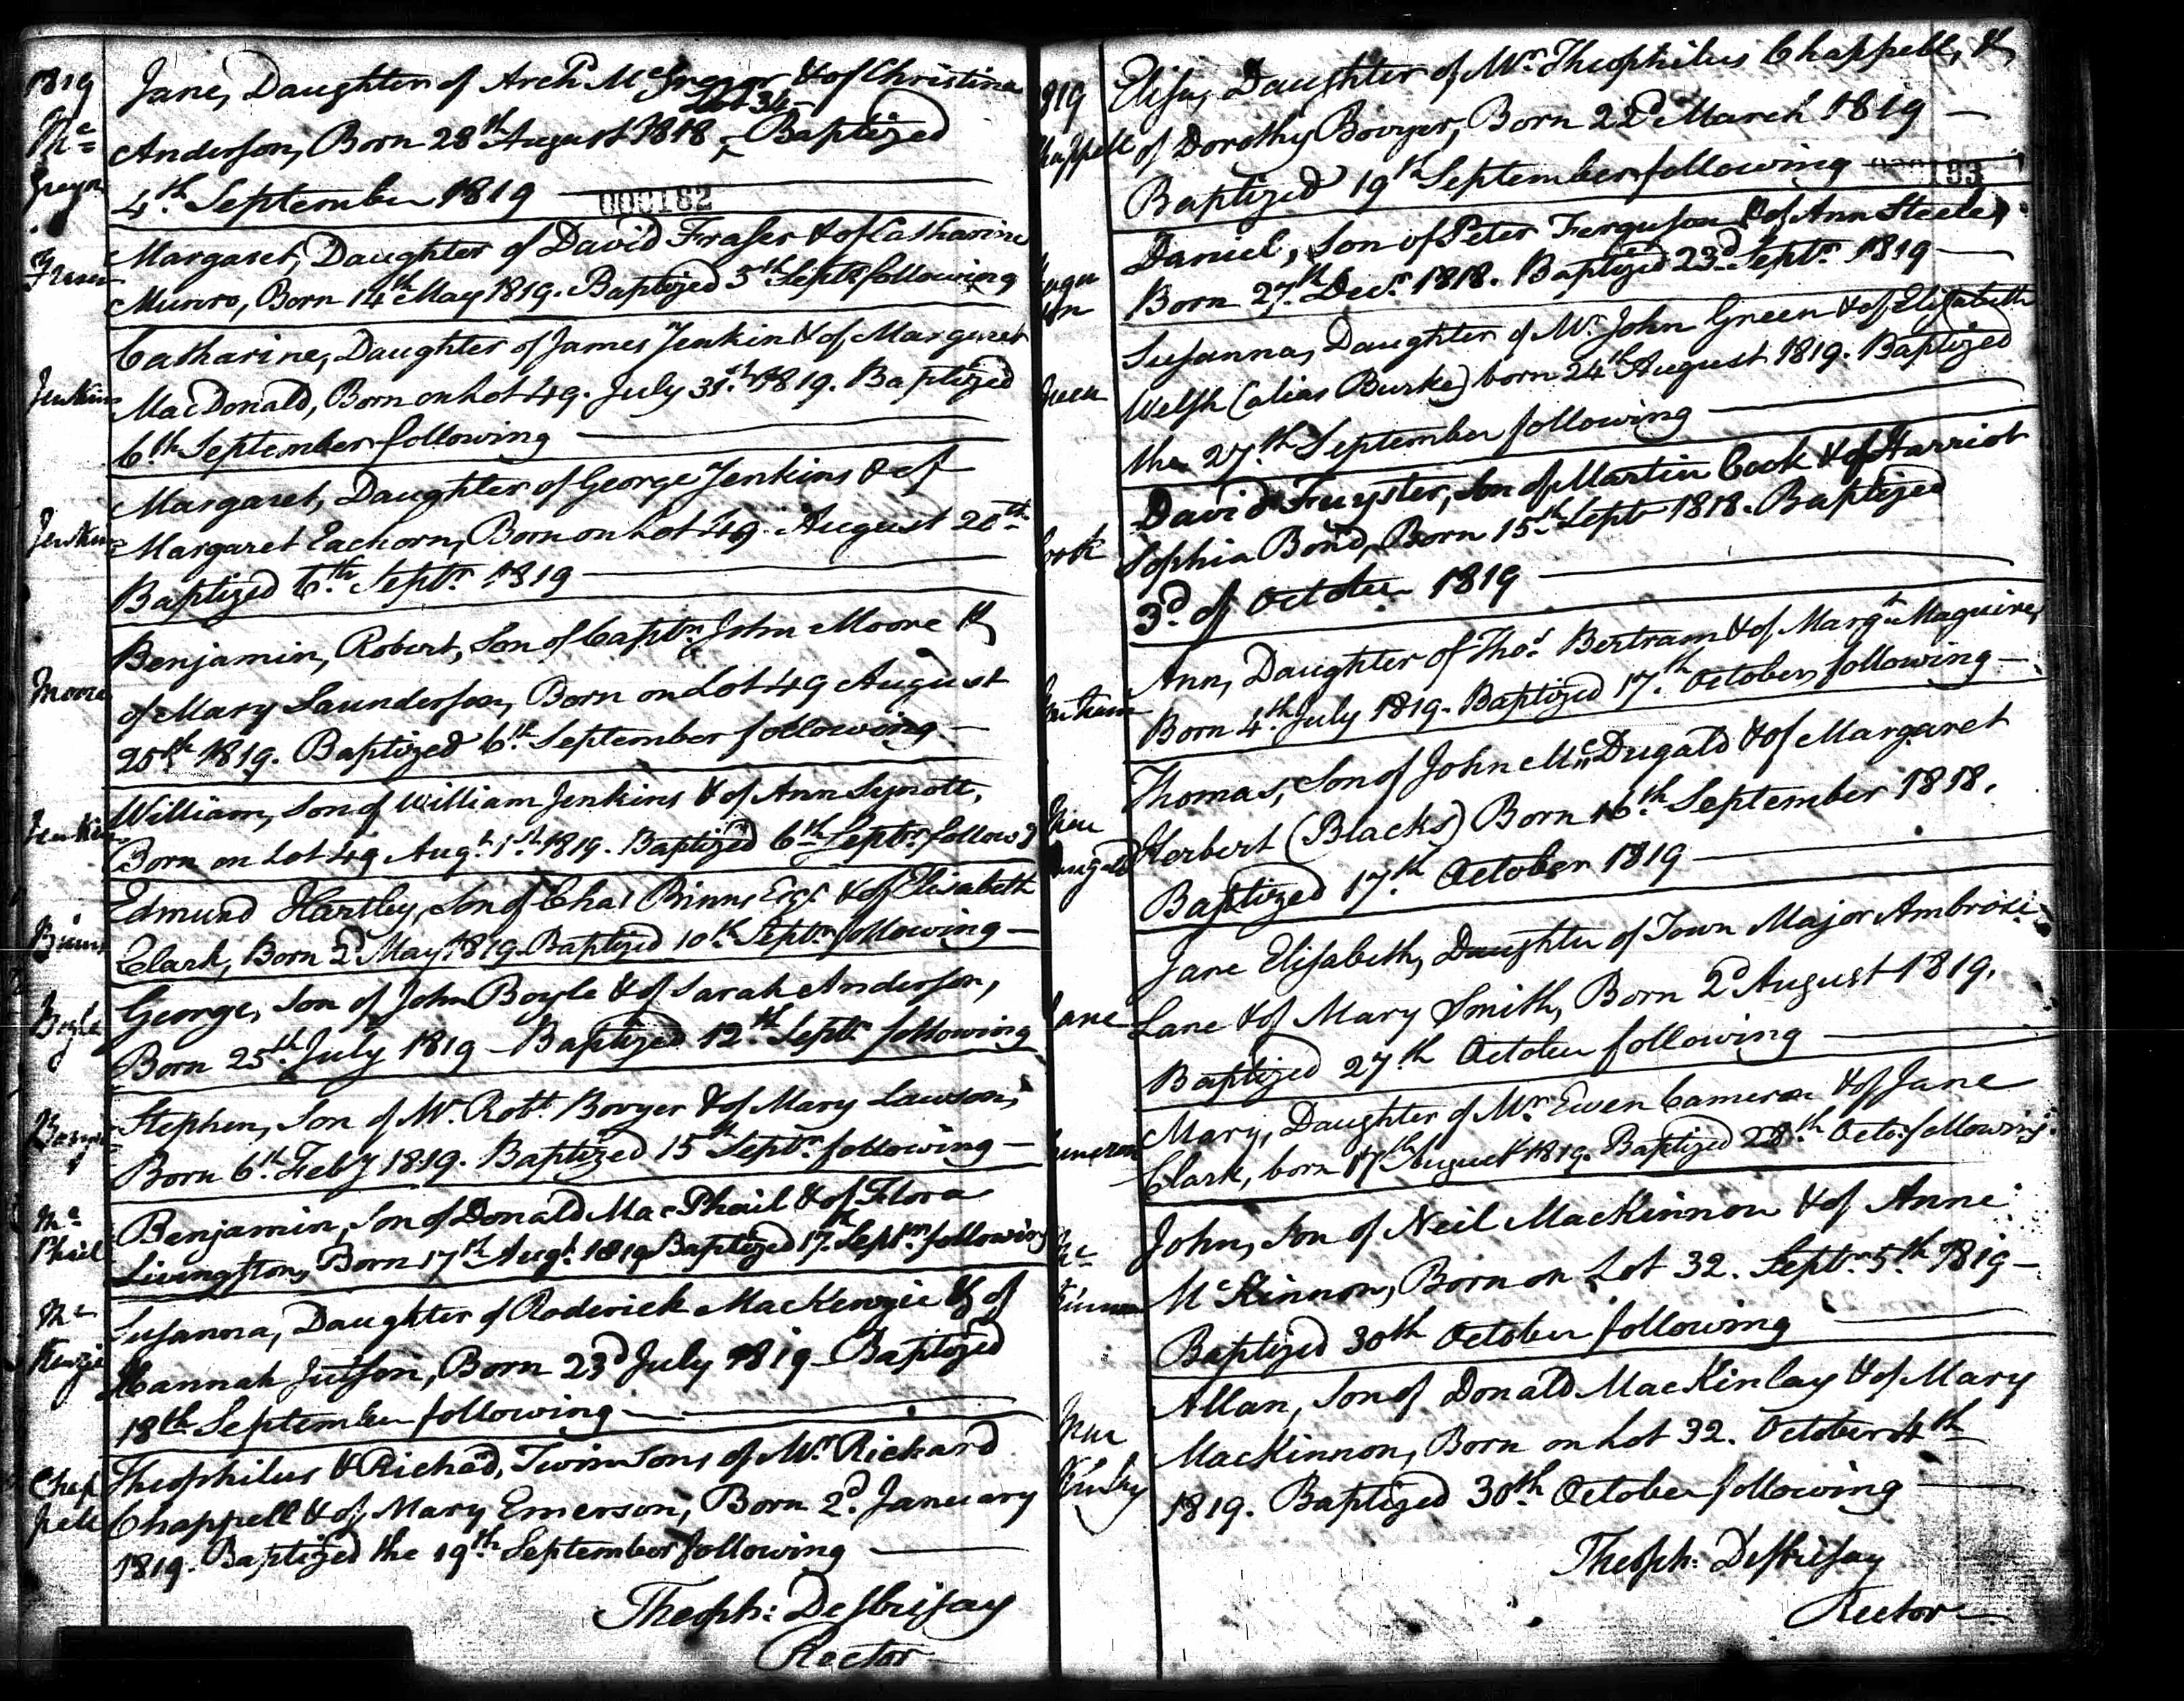 1819
Mc=
Gregor
Jane, Daughter of Archd McGregor & of Christina
Lot 34
Anderson, Born 28th August 1818,- Baptized
4th September 1819
000182
Fraser
Margaret, Daughter of David Fraser & of Catharine
Munro, Born 14th May 1819. Baptized 5th Septr following
Jenkins
Catharine, Daughter of James Jenkin & of Margaret
MacDonald, Born on Lot 49. July 31st 1819. Baptized
6th September following
Jenkins
Margaret, Daughter of George Jenkins & of
Margaret Eachorn, Born on Lot 49. August 20th
Baptized 6th Septr 1819
Moore
Benjamin, Robert, Son of Captn John Moore &
of Mary Saunderson, Born on Lot 49 August
25th 1819. Baptized 6th September following
Jenkins
William, Son of William Jenkins & of Ann Synott,
Born on Lot 49 Augt 1st 1819. Baptized 6th Septr follow
Binns
Edmund Hartley, Son of Chas Binns Esqr & of Elisabeth
Clark, Born 2d May 1819 Baptized 10th Septr following
Boyle
George, Son of John Boyle & of Sarah Anderson,
Born 25th July 1819 - Baptized 12th Septr following
Stephen, Son of Mr Robt Bovyer & of Mary Lawson,
Born 6th Feby 1819. Baptized 15th Septr following
Mc=
Phail
Benjamin, Son of Donald Mac Phail & of Flora
Livingston, Born 17th Augt 1819 Baptized 17th Septr following
Mc
Kenzie
Susanna, Daughter of Roderick MacKenzie & of
Hannah Jutson, Born 23d July 1819 - Baptized
18th September following
Chap
pell
Theophilus & Richad, Twin Sons of Mr Richard
Chappell & of Mary Emerson, Born 2d January
1819. Baptized the 19th September following
Theoph: DesBrisay
Rector
819
happell
Elisa, Daughter of Mr Theophilus Chappell, &
of Dorothy Bovyer, Born 22d March 1819
Baptized 19th September following
193
Daniel, Son of Peter Ferguson & of Ann Steele,
Born 27th Decr 1818. Baptized 23d Septr 1819
Green
Susanna, Daughter of Mr John Green & of Elisabeth
Welsh (alias Burke) born 24th August 1819. Baptized
the 27th September following
Cook
David Fruyster, Son of Martin Cook & of Harriot
Sophia Bond, Born 15th Sept 1818. Baptized
3d of October 1819
Ann, Daughter of Thos Bertram & of Margt Maguire,
Born 4th July 1819. Baptized 17th October following
Thomas, Son of John Mc Dugald & of Margaret
Herbert (Blacks) Born 16th September 1818.
Baptized 17th October 1819
Lane
Jane Elisabeth, Daughter of Town Major Ambrose
Lane & of Mary Smith, Born 2d August 1819.
Baptized 27th October following
Cameron
Mary, Daughter of Mr Ewen Cameron & of Jane
Clark, born 17th August 1819. Baptized 28th Octo: following
Mc
Kinnon
John, Son of Neil MacKinnon & of Anne
McKinnon, Born on Lot 32. Septr 5th 1819
Baptized 30th October following
Mac
Kinlay
Allan, Son of Donald MacKinlay & of Mary
MacKinnon, Born on Lot 32. October 4th
1819. Baptized 30th October following
Theoph: DesBrisay
Rector